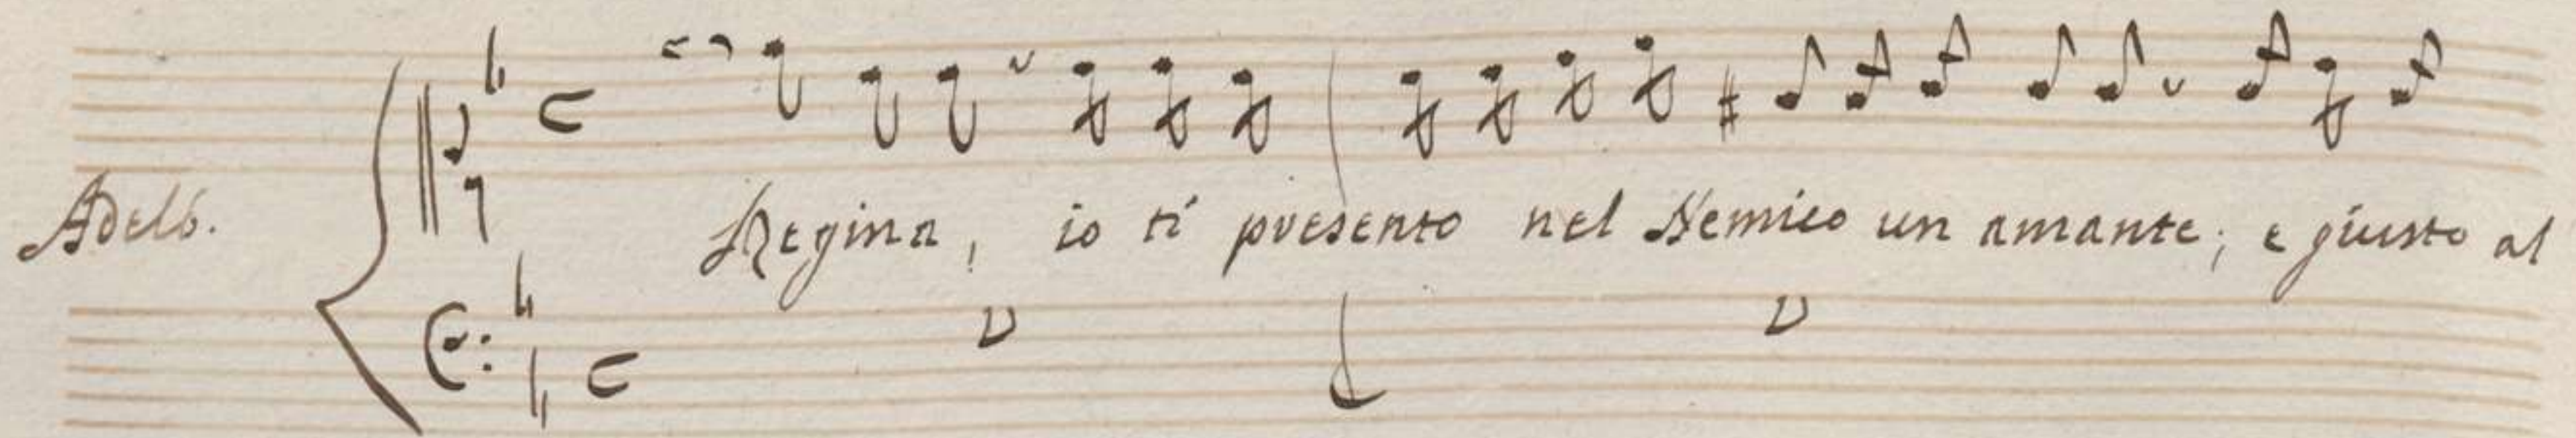 Adelb.
Regina, io ti presento nel Nemico un amante; e giusto al